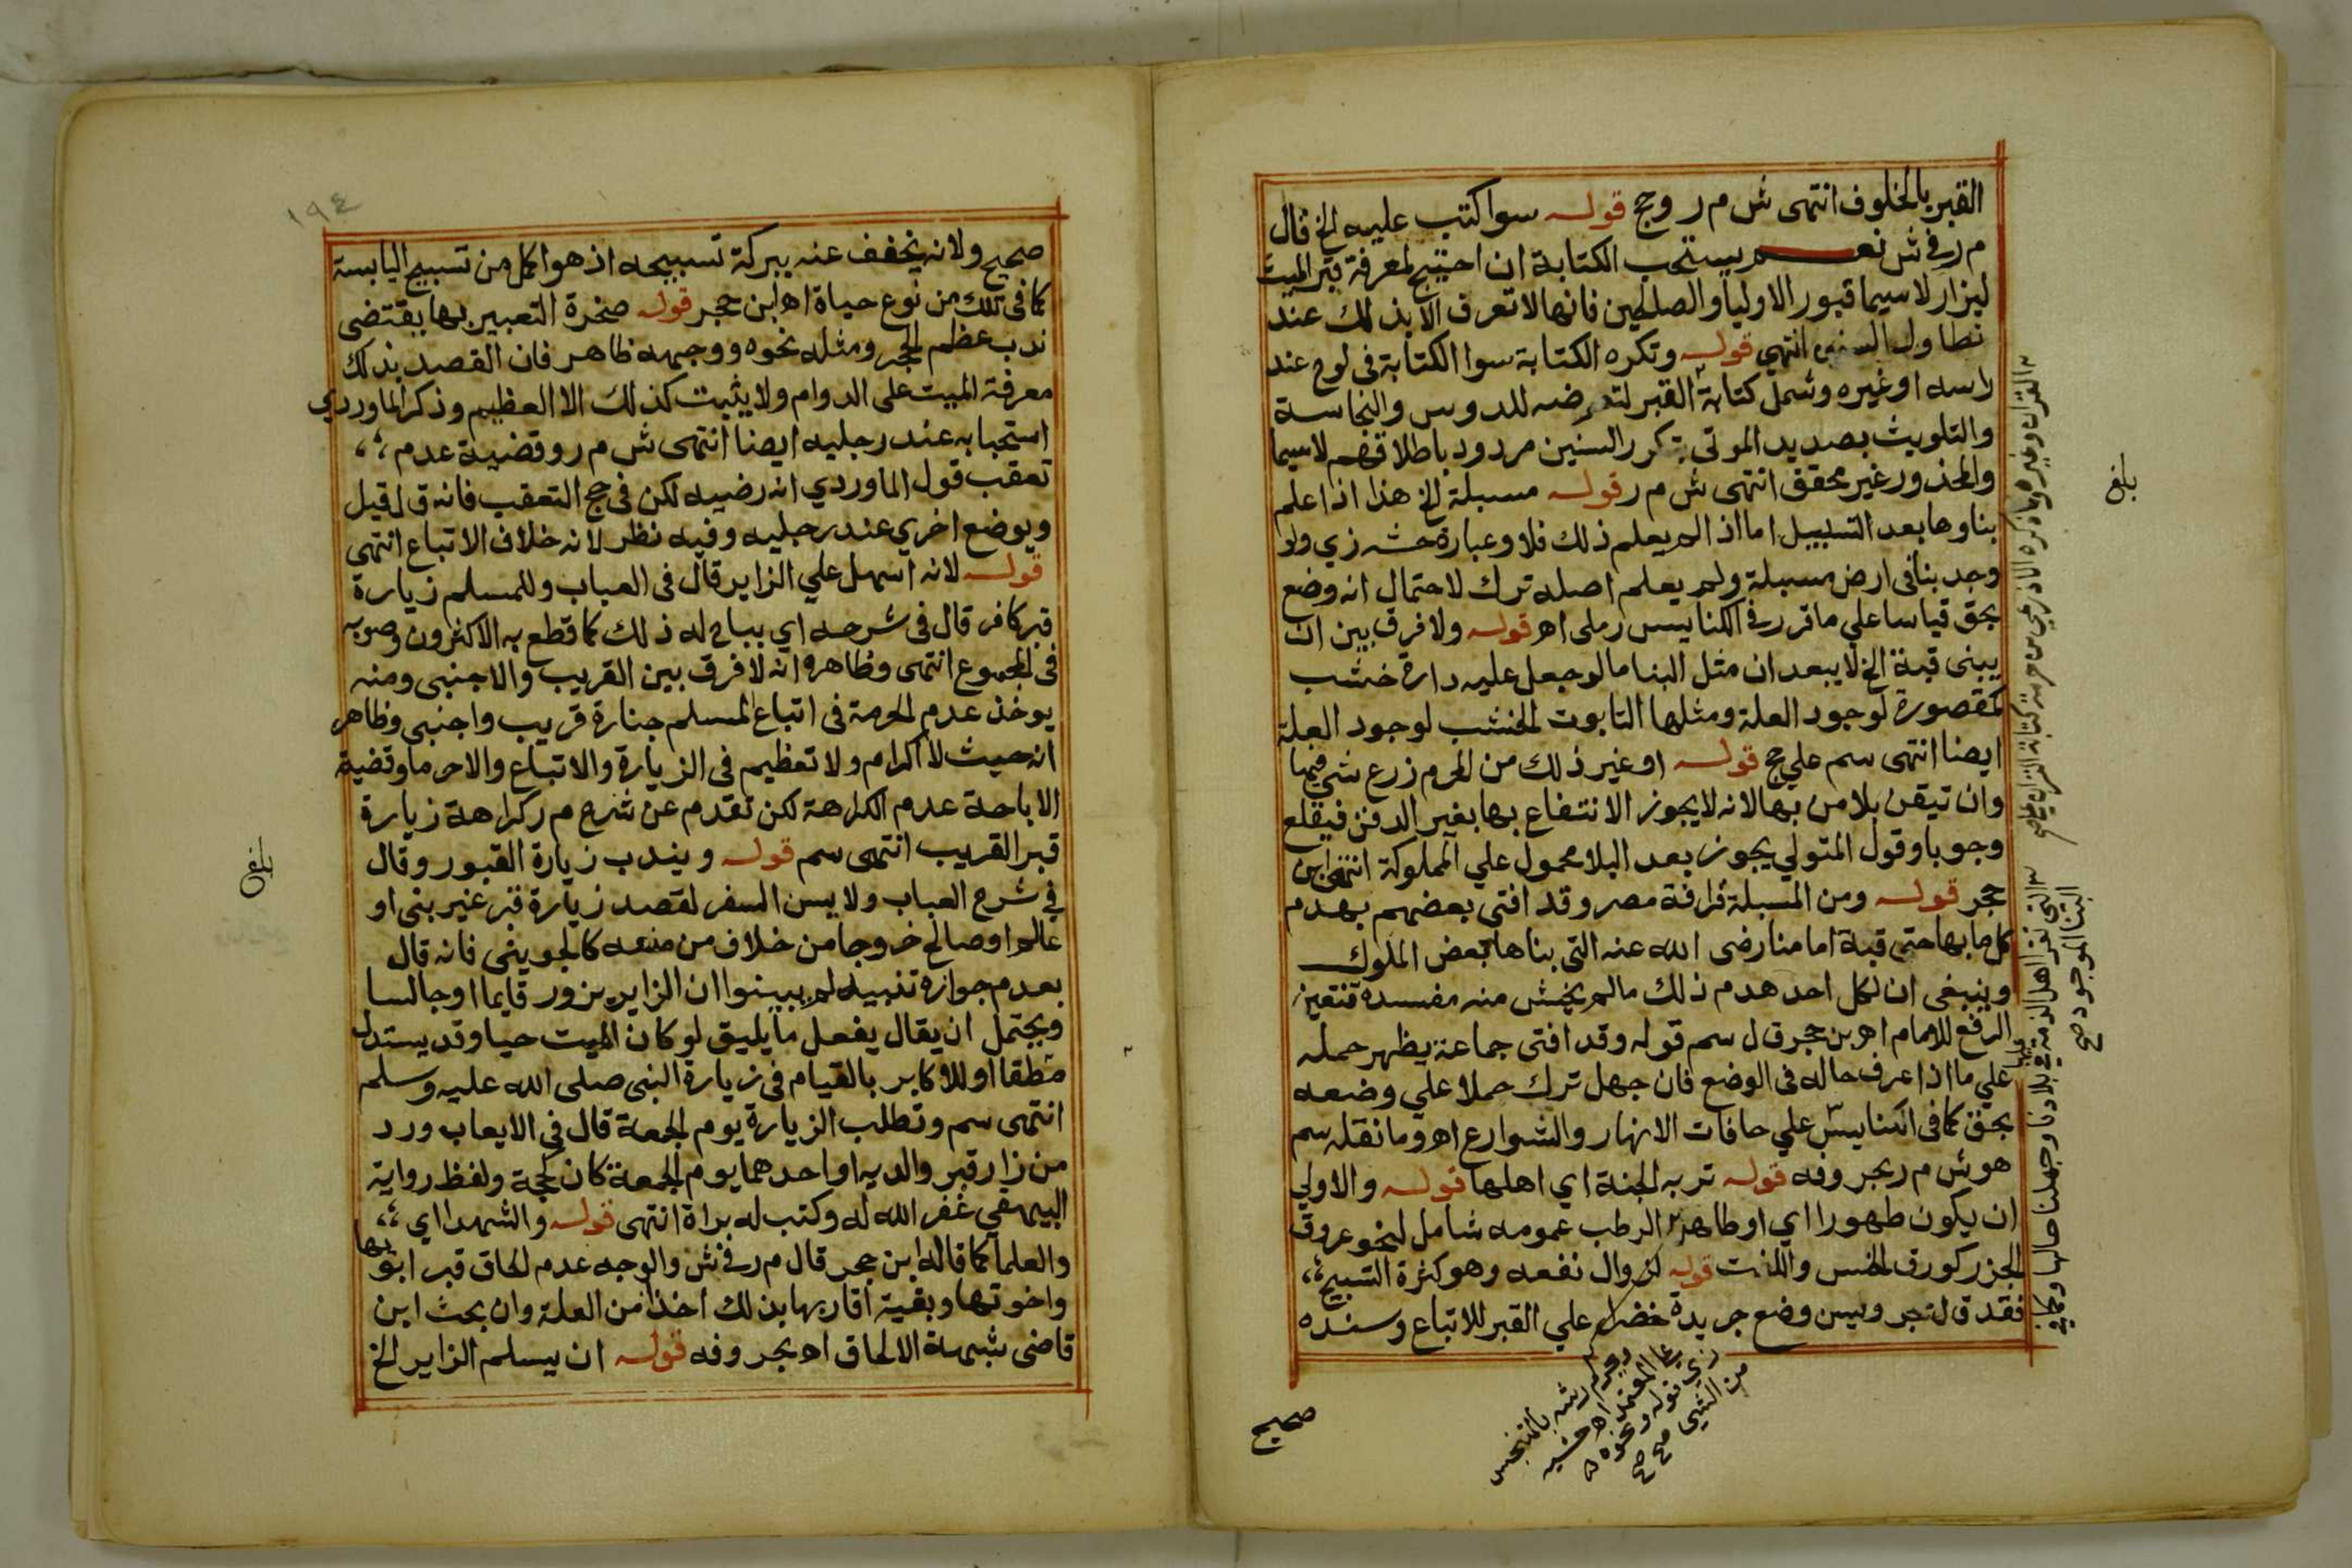 القبر بالخلوف انتهى ش م ر وحج قوله سوا كتب عليه الخ قال
م ر في ش نعم يستحب الكتابة ان احتيج لمعرفة قبر الميت
ليزار لاسيما قبور الاوليا والصلحين فانها لا تعرف الا بذلك عند
تطاول السنين انتهي قوله وتكره الكتابة سوا الكتابة في لوح عند
راسه او غيره وشمل كتابة القبر لتعرضه للدوس والنجاسة
والتلويث بصديد الموتى بتكرر السنين مردود باطلاقهم لاسيما
والمحذور غير محقق انتهى ش م ر قوله مسبلة الخ هذا اذا علم
بناوها بعد التسبيل اما اذا لم يعلم ذلك فلا وعبارة حشه زي ولو
وجد بنا في ارض مسبلة ولم يعلم اصله ترك لاحتمال انه وضع
بحق قياسا علي ما قرر في الكنايس رملى اه قوله ولا فرق بين ان
يبنى قبة الخ لا يبعد ان مثل البنا مالو جعل عليه دارة خشب
كمقصورة لوجود العلة ومثلها التابوت الخشب لوجود العلة
ايضا انتهى سم علي حج قوله او غير ذلك من المحرم زرع شي فيها
وان تيقن بلا من بها لانه لا يجوز الانتفاع بها بغير الدفن فيقلع
وجوبا وقول المتولي يجوز بعد البلا محمول علي المملوكة انتهى ابن
حجر قوله ومن المسبلة قرافة مصر وقد افتى بعضهم بهدم
كل ما بها حتى قبة امامنا رضى الله عنه التى بناها بعض الملوك
وينبغى ان لكل احد هدم ذلك مالم يخش منه مفسدة فتتعين
الرفع للامام اه بن حجر قال سم قوله وقد افتى جماعة يظهر حمله
علي ما اذا عرف حاله فى الوضع فان جهل ترك حملا علي وضعه
بحق كما فى الكنايس علي حافات الانهار والشوارع اه وما نقله سم
هو ش م ر بحروفه قوله تربه الجنة اي اهلها قوله والاولي
ان يكون طهورا اي او طاهرا الرطب عمومه شامل لنحو عروق
الجزر كورق الخس واللفت قوله لزوال نفعه وهو كثرة التسبيح
فقد قال حجر ويسن وضع جريدة خضرا علي القبر للاتباع وسنده
صحيح
ويحرم رشه بالنجس
من الشي صح
القران وغيره وما ذكره الاذرعي من حرمة كتابة القران
التي تقر اهل الذمة في بلادنا وجهلنا حالها
البنا الموجود صح
بلغ
١٩٤
صحيح ولانه يخفف عنه ببركة تسبيحه اذ هو اكمل من تسبيح اليابسة
كما فى تلك من نوع حياة اه ابن حجر قوله صخرة التعبير بها يقتضى
ندب عظم الحجر ومثله نحوه ووجهه ظاهر فان القصد بذلك
معرفة الميت على الدوام ولا يثبت كذلك الا العظيم وذكر الماوردي
استحبابه عند رجليه ايضا انتهى ش م ر وقضية عدم
تعقب قول الماوردي انه رضيه لكن فى حج التعقب فانه قال قيل
ويوضع اخري عند رجليه وفيه نظر لانه خلاف الاتباع انتهى
قوله لانه اسهل علي الزاير قال فى العباب وللمسلم زيارة
قبر كافر قال فى شرحه اي يباح له ذلك كما قطع به الاكثرون وصوبه
فى المجموع انتهى وظاهره انه لا فرق بين القريب والاجنبى ومنه
يوخذ عدم الحرمة فى اتباع المسلم جنازة قريب واجنبى وظاهر
انه حيث لا اكرام ولا تعظيم فى الزيارة والاتباع والا حرما وقضية
الاباحة عدم الكراهة لكن تقدم عن شرح م ر كراهة زيارة
قبر القريب انتهى سم قوله ويندب زيارة القبور وقال
في شرح العباب ولا يسن السفر لقصد زيارة قبر غير بنى او
عالم او صالح خروجا من خلاف من منعه كالجوينى فانه قال
بعدم جوازه تنبيه لم يبينوا ان الزاير يزور قايما او جالسا
ويحتمل ان يقال يفعل ما يليق لو كان الميت حيا وقد يستدل
مطلقا او للاكابر بالقيام فى زيارة النبى صلى الله عليه وسلم
انتهى سم وتطلب الزيارة يوم الجمعة قال في الايعاب ورد
من زار قبر والديه او احدهما يوم الجمعة كان كحجة ولفظ رواية
البيهقي غفر الله له وكتب له براة انتهى قوله والشهدا اي
والعلما كما قاله ابن حجر قال م ر في ش والوجه عدم الحاق قبر ابويها
واخوتها وبقية اقاربها بذلك اخذا من العلة وان بحث ابن
قاضى شهبة الالحاق اه بحروفه قوله ان يسلم الزاير الخ
بلغ